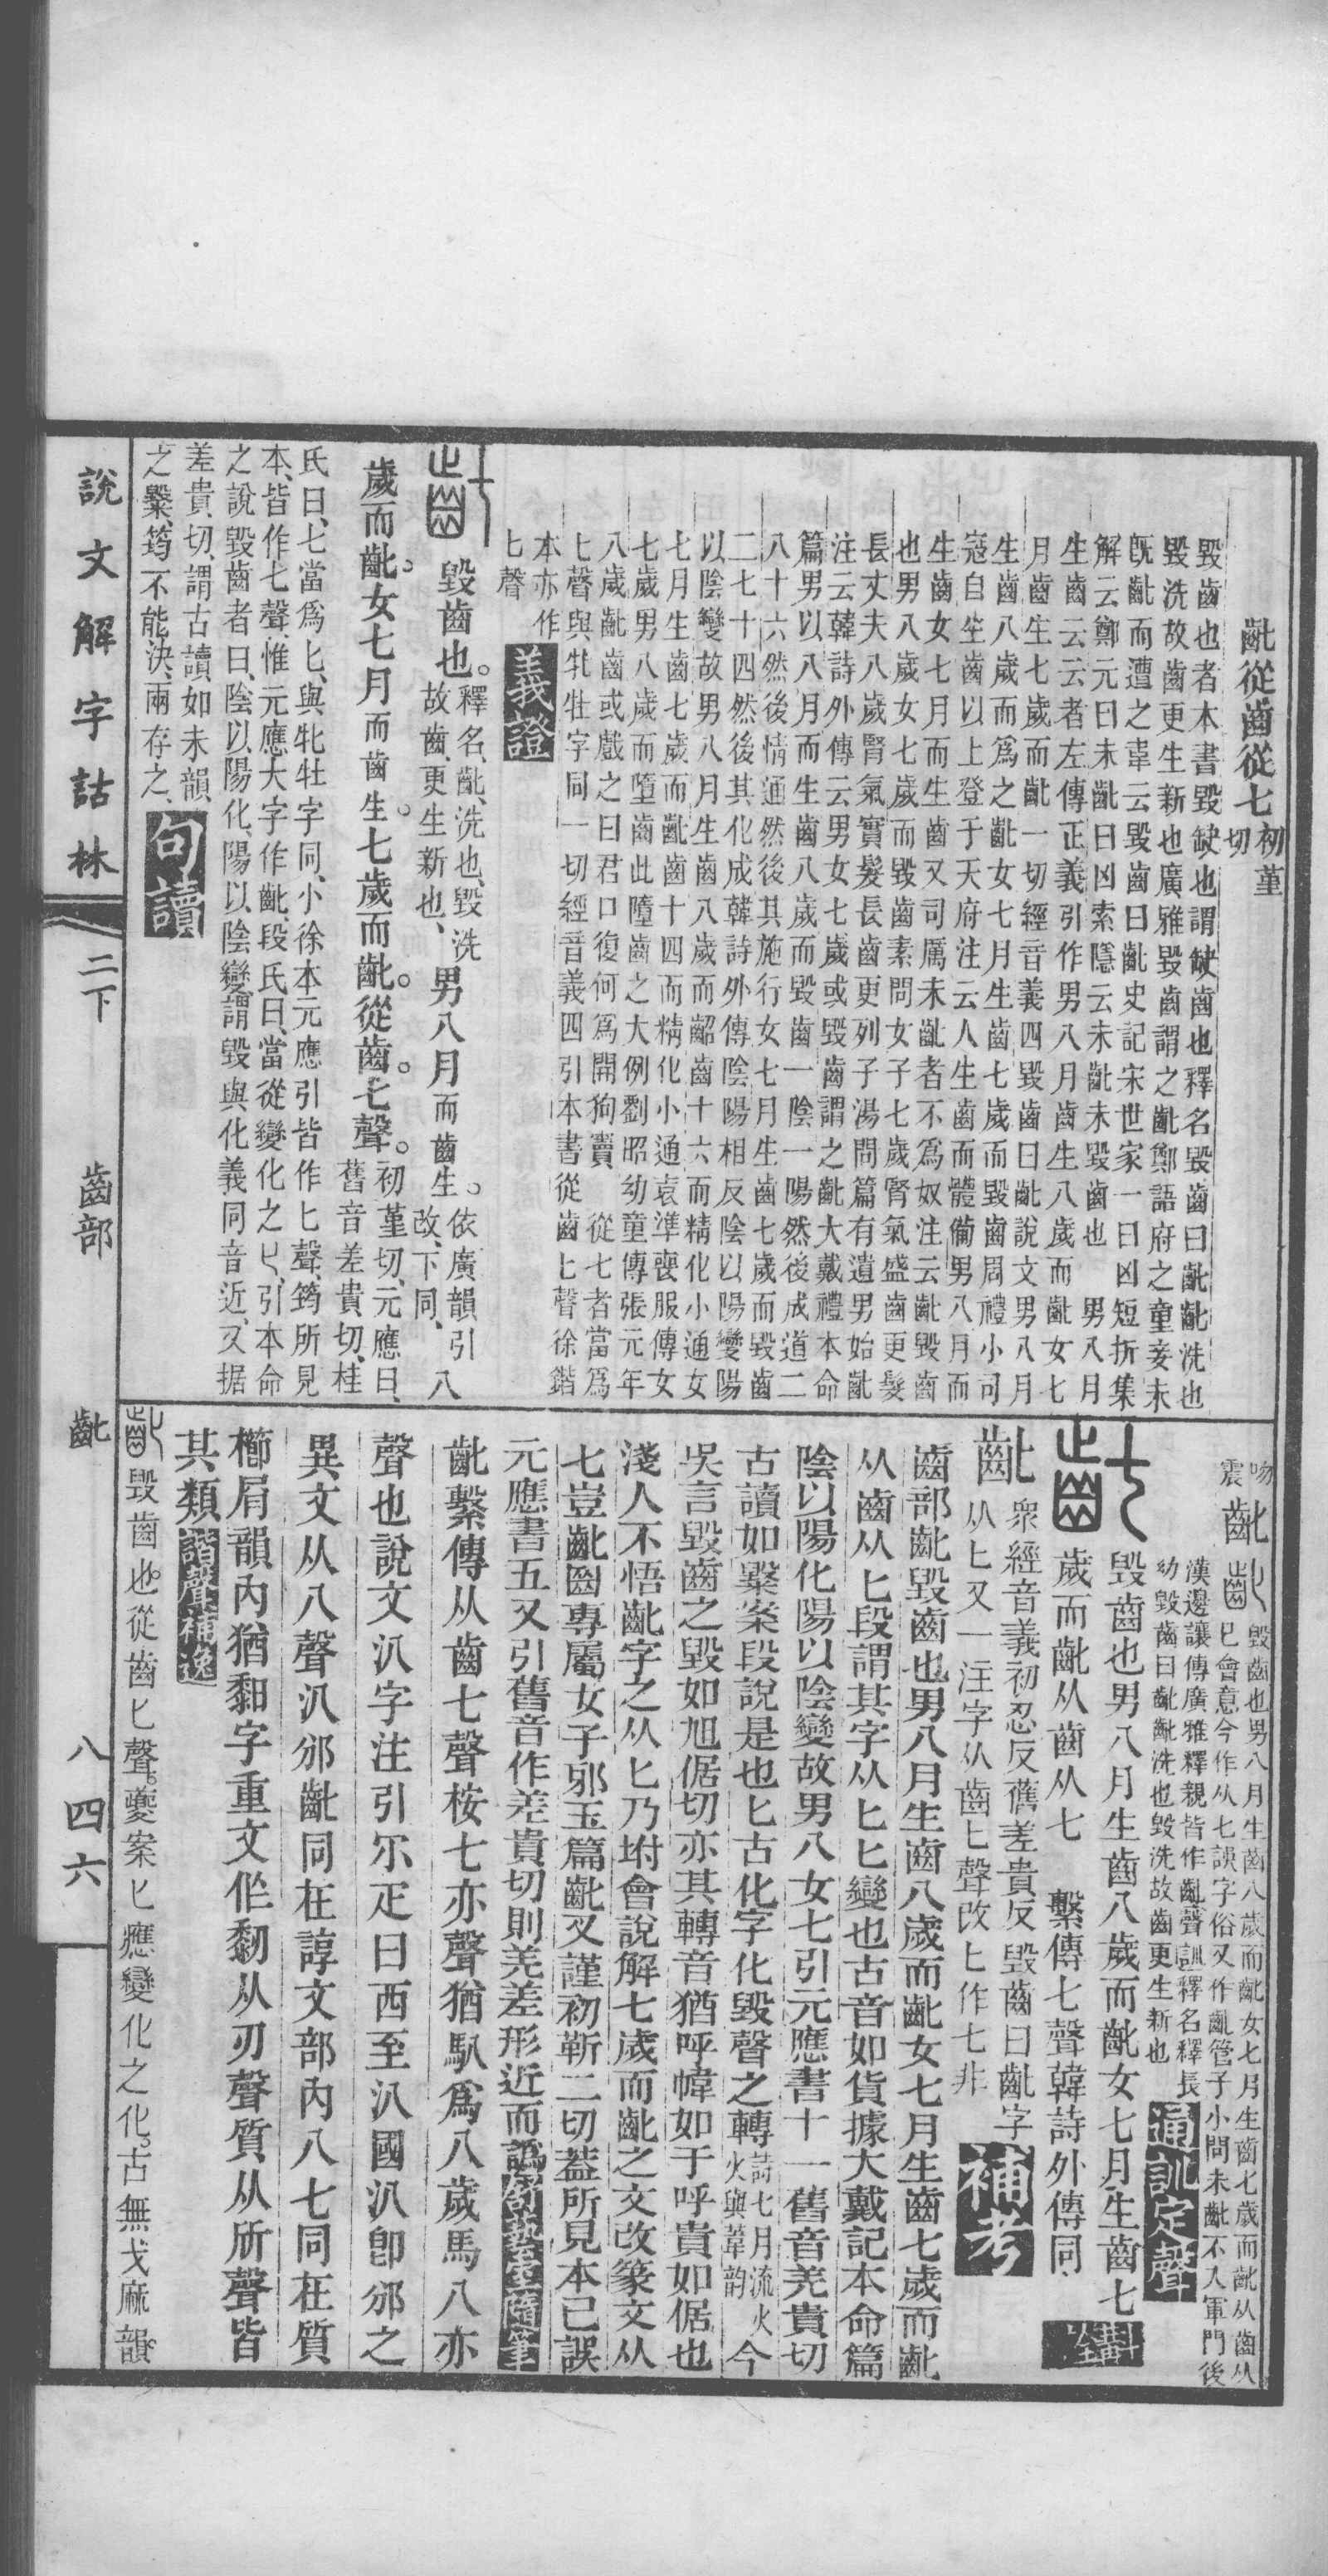 齔從齒從七初堇切
毀齒也者本書毀缺也謂缺齒也釋名毀齒曰齔齔洗也
毀洗故齒更生新也廣雅毀齒謂之齔鄭語府之童妾未
旣齔而遭之韋云毀齒曰齔史記宋世家一曰凶短折集
解云鄭元曰未齔曰凶索隱云未齔未毀齒也 男八月
生齒云云者左傳正義引作男八月齒生八歲而齔女七
月齒生七歲而齔一切經音義四毀齒曰齔說文男八月
生齒八歲而爲之齔女七月生齒七歲而毀齒周禮小司
寇自生齒以上登于天府注云人生齒而體備男八月而
生齒女七月而生齒又司厲未齔者不爲奴注云齔毀齒
也男八歲女七歲而毀齒素問女子七歲腎氣盛齒更髮
長丈夫八歲腎氣實髮長齒更列子湯問篇有遺男始齔
注云韓詩外傳云男女七歲或毀齒謂之齔大戴禮本命
篇男以八月而生齒八歲而毀齒一陰一陽然後成道二
八十六然後情通然後其施行女七月生齒七歲而毀齒
二七十四然後其化成韓詩外傳陰陽相反陰以陽變陽
以陰變故男八月生齒八歲而齠齒十六而精化小通女
七月生齒七歲而齔齒十四而精化小通袁準喪服傳女
七歲男八歲而墮齒此墮齒之大例劉昭幼童傳張元年
八歲齔齒或戲之曰君口復何爲開狗竇 從七者當爲
七聲與牝牡字同一切經音義四引本書從齒七聲徐鍇
本亦作
七聲 義證
毀齒也。釋名、齔、洗也、毀洗故齒、更生新也、男八月而齒生。依廣韻引改、下同、八
歲而齔。女七月而齒生。七歲而齔。從齒。七聲。初堇切、元應曰、舊音差貴切、桂
氏曰、七當爲匕、與牝牡字同、小徐本元應引皆作匕聲、筠所見
本、皆作七聲、惟元應大字作齔、段氏曰、當從變化之匕、引本命
之說毀齒者曰、陰以陽化、陽以陰變、謂毀與化義同音近、又据
差貴切、謂古讀如未韻、
之槩、筠不能決、兩存之、 句讀
說文解字詁林 二下 齒部 齔 八四六
吻
震 齔 毀齒也男八月生齒八歲而齔女七月生齒七歲而齔从齒从
匕會意今作从七誤字俗又作齓管子小問未齔不入軍門後
漢邊讓傳廣雅釋親皆作齓聲訓釋名釋長
幼毀齒曰齔齔洗也毀洗故齒更生新也 通訓定聲
毀齒也男八月生齒八歲而齔女七月生齒七
歲而齔从齒从七 繫傳七聲韓詩外傳同 斠詮
齔 眾經音義初忍反舊差貴反毀齒曰齔字
从匕又一注字从齒七聲改匕作七非 補考
齒部齔毀齒也男八月生齒八歲而齔女七月生齒七歲而齔
从齒从匕段謂其字从匕匕變也古音如貨據大戴記本命篇
陰以陽化陽以陰變故男八女七引元應書十一舊音羌貴切
古讀如槩案段說是也匕古化字化毀聲之轉詩七月流火火與葦韵今
吳言毀齒之毀如旭倨切亦其轉音猶呼幃如于呼貴如倨也
淺人不悟齔字之从匕乃坿會說解七歲而齔之文改篆文从
七豈齔齒專屬女子邪玉篇齔叉謹初靳二切蓋所見本已誤
元應書五又引舊音作差貴切則羌差形近而譌
齔繫傳从齒七聲桉七亦聲猶馭爲八歲馬八亦
聲也說文汃字注引尒疋曰西至汃國汃卽邠之
異文从八聲汃邠齔同在諄文部內八七同在質
櫛屑韻內猶䵒字重文作䵑从刃聲質从所聲皆
其類 諧聲補逸
毀齒也。從齒匕聲。夔案匕應變化之化。古無戈麻韻。